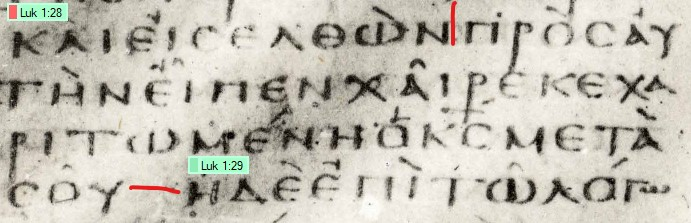 Luk 1:28
ΚΑΙΕΙϹΕΛΘΩΝΠΡΟϹΑΥ
ΤΗΝΕΙΠΕΝΧΑΙΡΕΚΕΧΑ
ΡΙΤΩΜΕΝΗΟΚ̅Ϲ̅ΜΕΤΑ
Luk 1:29
ϹΟΥ ΗΔΕΕΠΙΤΩΛΟΓΩ